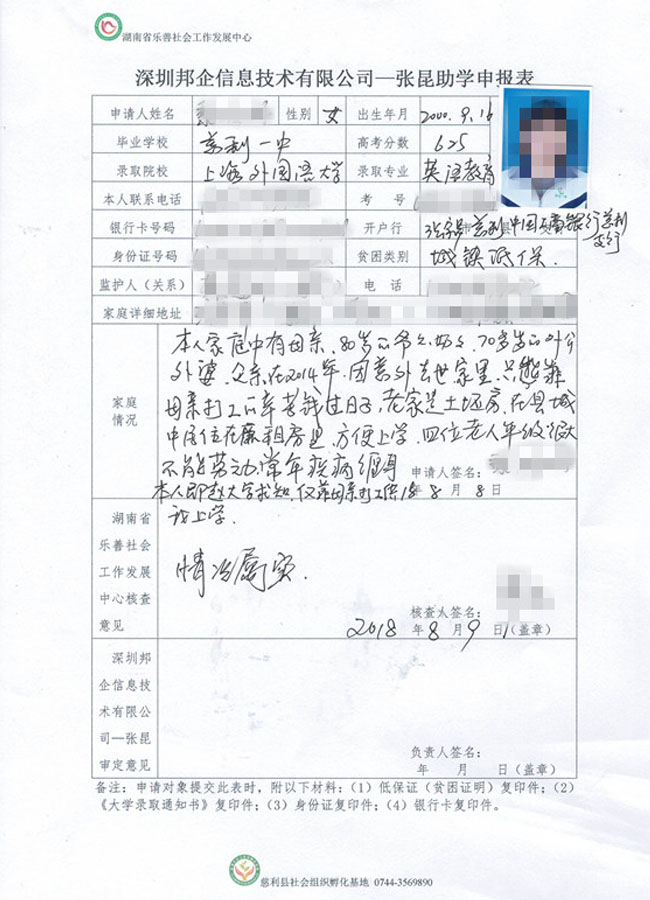 湖南省乐善社会工作发展中心
深圳邦企信息技术有限公司—张昆助学申报表
申请人姓名 性别 女 出生年月 2000.9.16
毕业学校 慈利一中 高考分数 625
录取院校 上海外国语大学 录取专业 英语教育
本人联系电话 考 号
银行卡号码 开户行 张家界市慈利县中国农业银行慈利支行
身份证号码 贫困类别 城镇低保.
监护人（关系） 电 话
家庭详细地址
家庭情况
本人家庭中有母亲、80岁的爷爷奶奶、70岁的外公
外婆.父亲在2014年.因意外去世家里.只能靠
母亲打工的辛苦钱过日子,老家是土坯房.在县城
中居住在廉租房里.方便上学.四位老人年级很大
不能劳动常年疾病缠身 申请人签名：
本人即赴大学求知.仅靠母亲打工供 18年8月8日
我上学.
湖南省乐善社会工作发展中心核查意见
情况属实.
核查人签名：
2018年8月9日（盖章）
深圳邦企信息技术有限公司—张昆审定意见
负责人签名：
年 月 日（盖章）
备注：申请对象提交此表时，附以下材料：（1）低保证（贫困证明）复印件；（2）
《大学录取通知书》复印件；（3）身份证复印件；（4）银行卡复印件。
慈利县社会组织孵化基地 0744-3569890